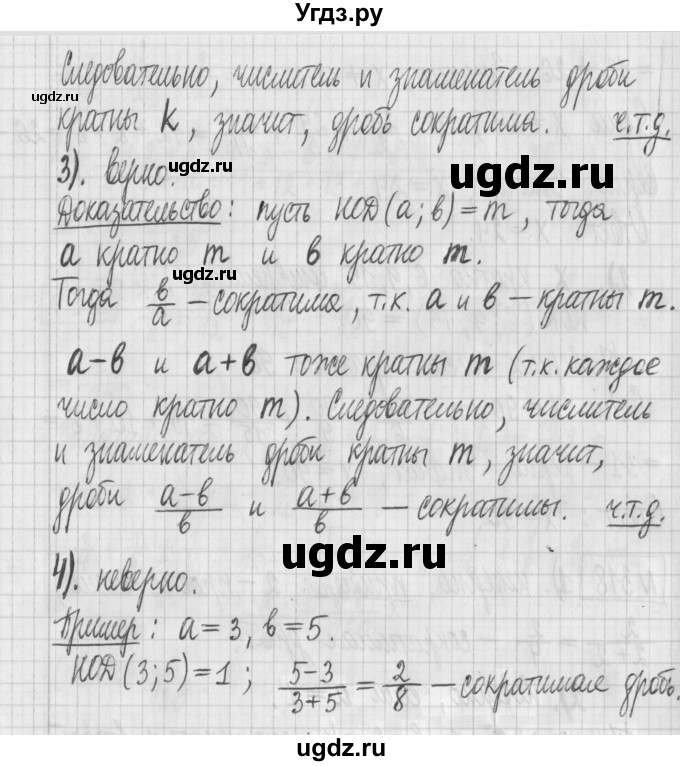 Угдз.ру
Следовательно, числитель и знаменатель дроби
ugdz.ru
кратны k, значит, дробь сократима. ч.т.д.
3). верно.
ugdz.ru
Доказательство: пусть НОД(a; в) = m, тогда
a кратно m и в кратно m.
ugdz.ru
Тогда в/a — сократима, т.к. a и в — кратны m.
a-в и a+в тоже кратны m (т.к. каждое
число кратно m). Следовательно, числитель
и знаменатель дроби кратны m, значит,
дроби (a-в)/в и (a+в)/в — сократимы. ч.т.д.
ugdz.ru
4). неверно.
ugdz.ru
Пример: a=3, в=5.
НОД(3;5)=1; (5-3)/(3+5) = 2/8 — сократимая дробь.
ugdz.ru
ugdz.ru